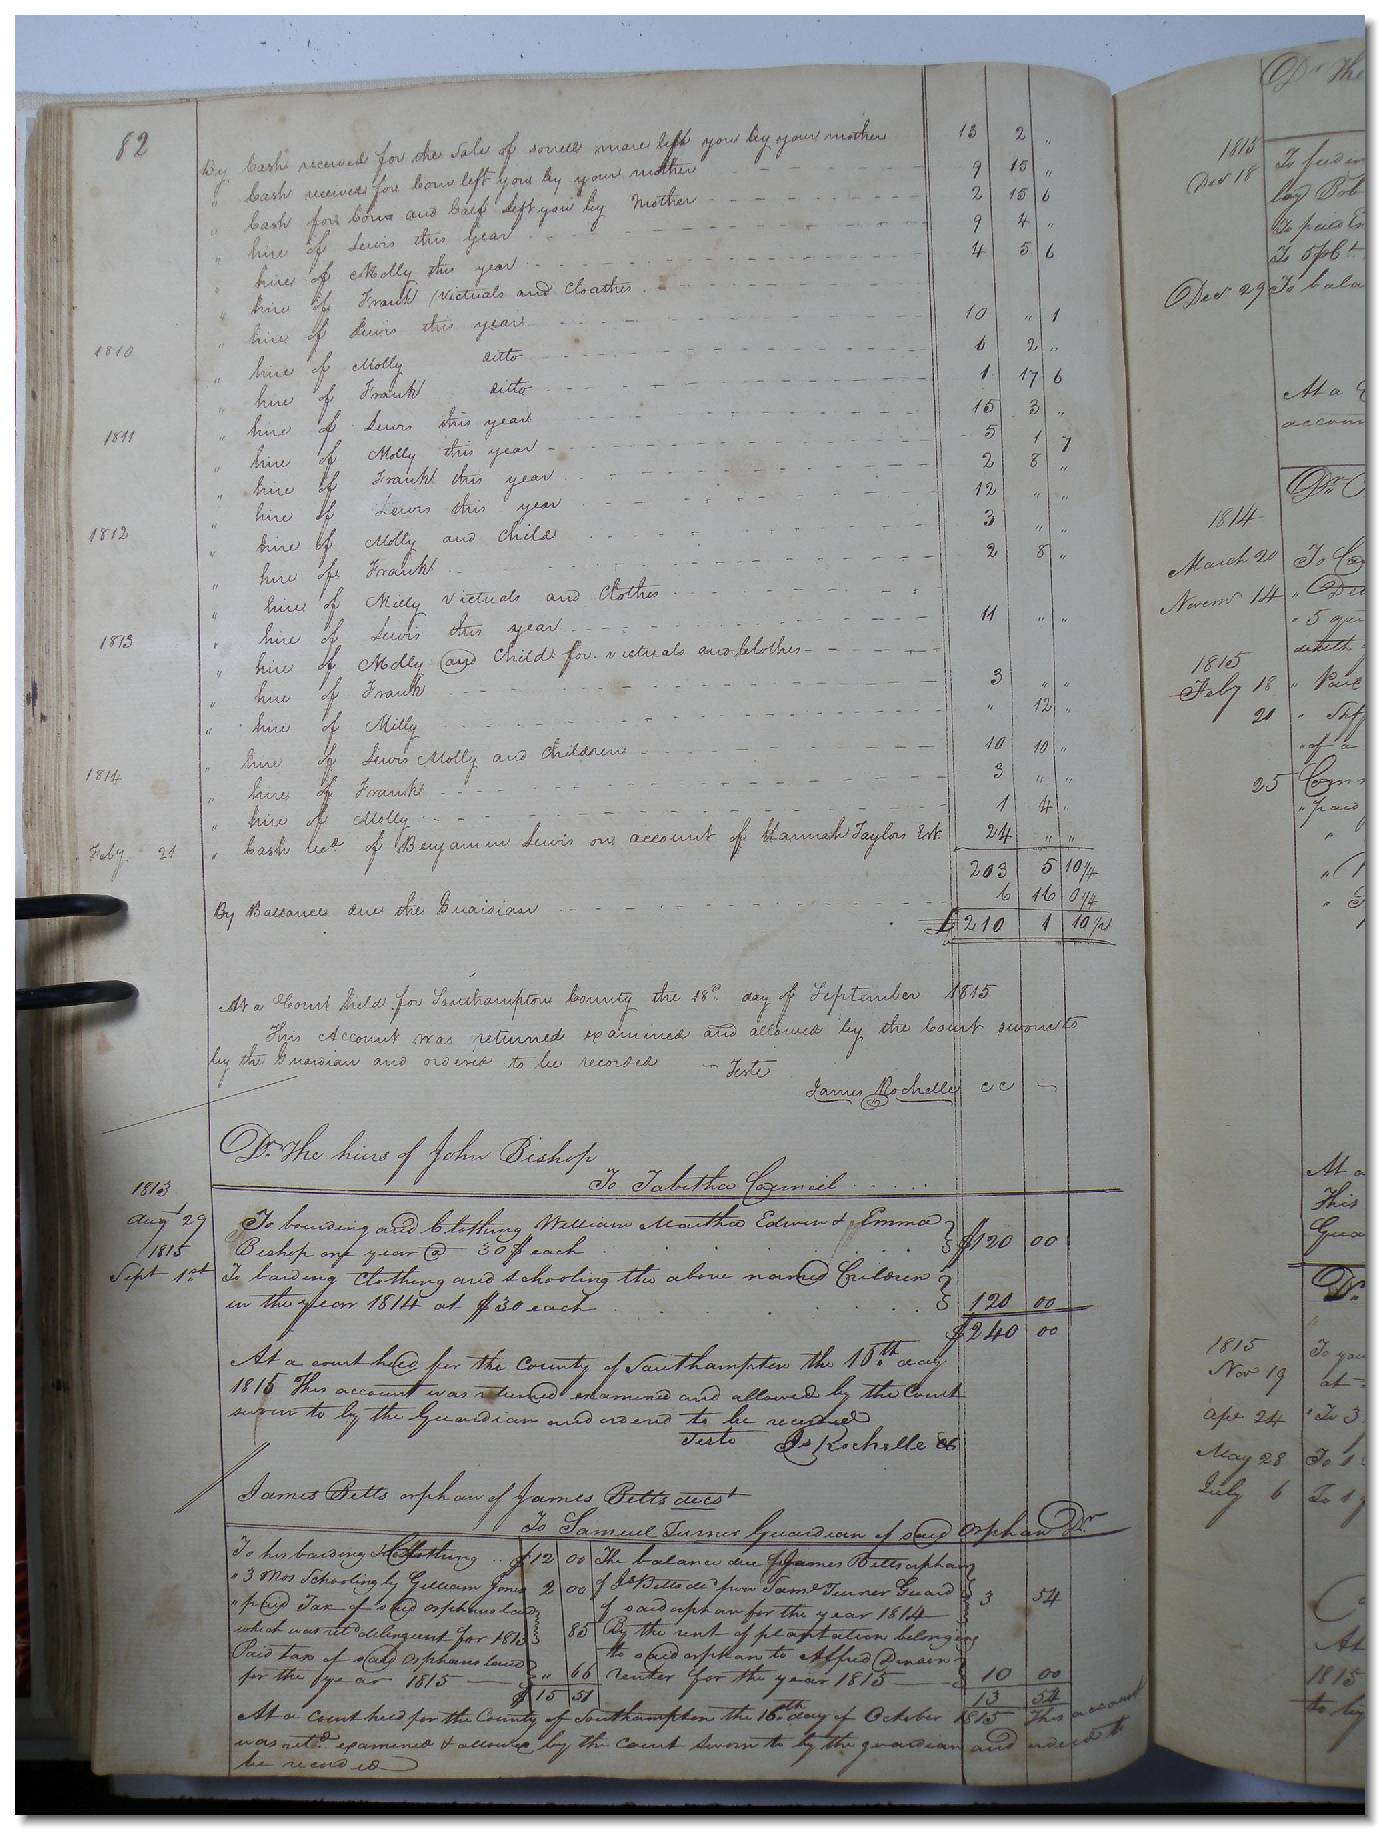 82
By Cash received for the Sale of sorrell mare left you by your mother 13 2 "
" Cash received for Corn left you by your mother 9 15 "
" Cash for Cows and Calf left you by Mother 2 15 6
" hire of Lewis this Year 9 4 "
" hire of Molly this year 4 5 6
" hire of Frank (victuals and Cloathes
1810 " hire of Lewis this year 10 " 1
" hire of Molly ditto 6 2 "
" hire of Frank ditto 1 17 6
1811 " hire of Lewis this year 15 3 "
" hire of Molly this year 5 1 7
" hire of Frank this year 2 8 "
1812 " hire of Lewis this year 12 " "
" hire of Molly and Child 3 " "
" hire of Frank 2 8 "
" hire of Milly victuals and Clothes
1813 " hire of Lewis this year 11 " "
" hire of Molly and Childe for victuals and Clothes
" hire of Frank 3 " "
" hire of Milly " 12 "
1814 " hire of Lewis Molly and Children 10 10 "
" hire of Frank 3 " "
" hire of Molly 1 4 "
Feby 21 " Cash recd of Benjamin Lewis on account of Hannah Taylors Est 24 " "
203 5 10 1/4
By Ballance due the Guardian 6 16 0 1/4
£ 210 1 10 1/2
At a Court held for Southampton County the 18th day of September 1815
This Account was returned examined and allowed by the Court sworn to
by the Guardian and ordered to be recorded Teste
James Rochelle CC
Dr The heirs of John Bishop
To Tabitha Council
1813
Augt 29 To boarding and Clothing William Martha Edwin & Emma
Bishop one year @ 30$ each $120 00
1815
Sept 1st To barding Clothing and schooling the above named Children
in the year 1814 at $30 each 120 00
$240 00
At a court held for the County of Southampton the 16th day
1815 This account was returned examined and allowed by the Court
sworn to by the Guardian and ordered to be recorded
Teste Js Rochelle CC
James Betts orphan of James Betts decst
To Samuel Turner Guardian of said Orphan Dr
To his barding & Clothing $12 00 The balance due of James Betts orphan
" 3 Mos Schooling by Gilliam Jones 2 00 of Js Betts decd from Saml Turner Guard 3 54
" paid Tax of said orphans land of said orphan for the year 1814
which was retd delinquent for 1813 85 By the rent of plantation belonging
Paid tax of said Orphans land to said orphan to Alfred Denson
for the year 1815 " 66 renter for the year 1815 10 00
$15 51 13 54
At a Court held for the County of Southampton the 16th day of October 1815 This account
was retd examined & allowed by the Court sworn to by the guardian and ordered to
be recorded
Dr The
1815
Dec 18
To paid
To 5 pCt
Dec 29 To bala
At a
accoun
Dr
1814
March 20
Novemr 14
" 5
1815
Feby 18
20
" of a
25
" paid
At a
This
Gua
Dr
1815
Nov 19 To you
at
Apr 24 " To 3
May 28 To 1
July 6 To 1
At
1815
to by